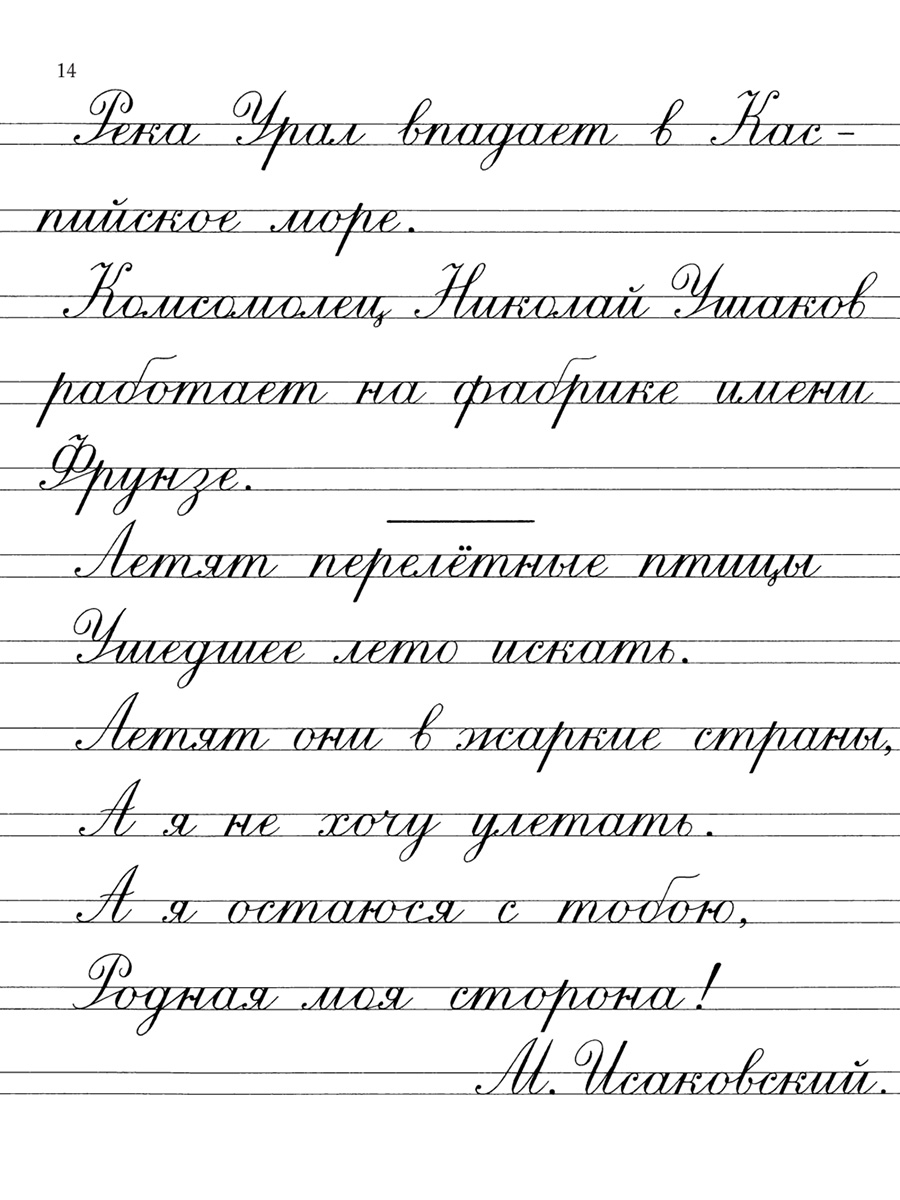 14
Река Урал впадает в Кас-
пийское море.
Комсомолец Николай Ушаков
работает на фабрике имени
Фрунзе.
Летят перелётные птицы
Ушедшее лето искать.
Летят они в жаркие страны,
А я не хочу улетать.
А я остаюся с тобою,
Родная моя сторона!
М. Исаковский.